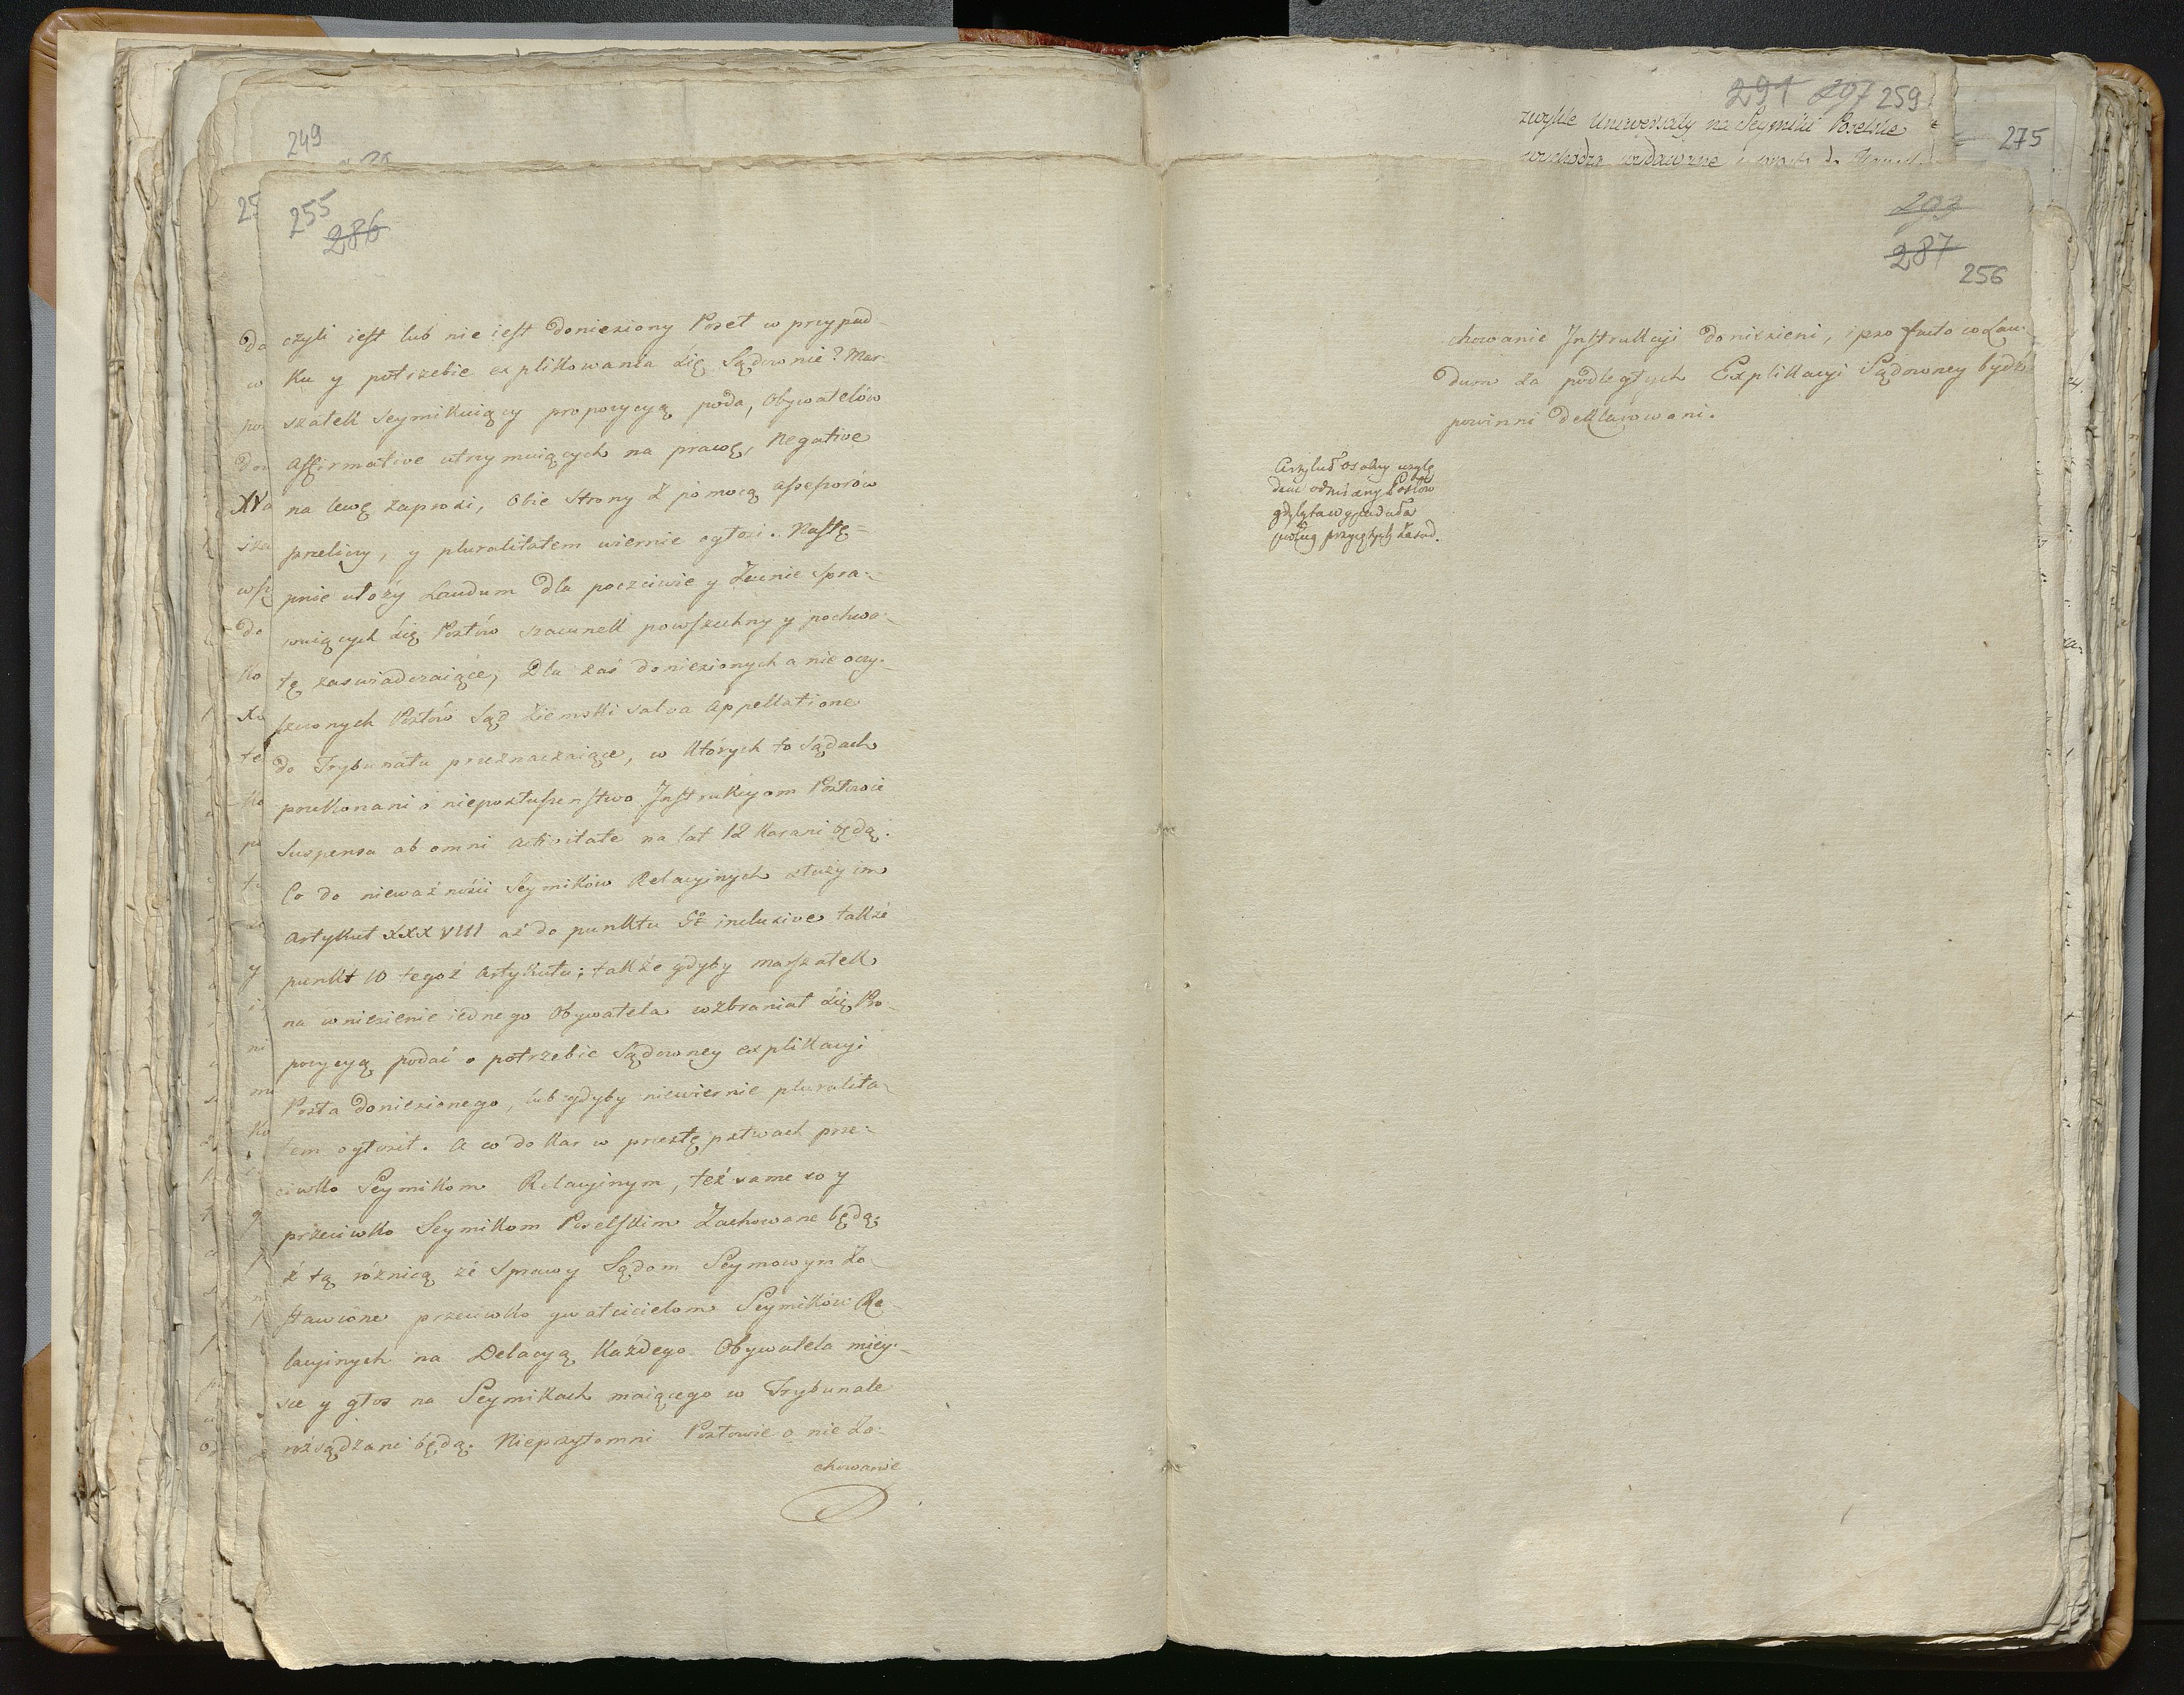 249
255
286
czyli iest lub nie iest doniesiony Poseł w przypad-
ku y potrzebie explikowania się Sądownie? Mar-
szałek Seymikuiący propozycyą poda, Obywatelów
Affirmative utrzymuiących na prawę, Negative
na lewę zaprosi, Obie Strony z pomocą Assessorów
przeliczy, y pluralitatem wiernie ogłosi. Nastę=
pnie ułoży Laudum dla poczciwie y Zacnie spra-
wuiących się Posłów szacunek powszechny y pochwa-
łę zaswiadczaiące, Dla zaś doniesionych a nie oczy-
szczonych Posłów Sąd Ziemski salva Appellatione
do Trybunału przeznaczaiące, w których to Sądach
przekonani o nieposłuszenstwo Instrukcyom Posłowie
Suspensa ab omni Activitate na lat 12 karani będą.
Co do nieważności Seymików Relacyinych służy im
Artykuł XXXVIII aż do punktu 5º inclusive także
punkt 10 tegoż Artykułu; także gdyby Marszałek
na wniesienie iednego Obywatela wzbraniał się Pro-
pozycyą podać o potrzebie Sądowney explikacyi
Posła doniesionego, lub gdyby niewiernie pluralita-
tem ogłosił. A co do kar w przestępstwach prze-
ciwko Seymikom Relacyinym, też same co y
przeciwko Seymikom Poselskim Zachowane będą;
z tą różnicą że Sprawy Sądom Seymowym Zo-
stawione przeciwko gwałcicielom Seymików Re-
lacyinych na Delacyą każdego Obywatela miey-
sce y głos na Seymikach maiącego w Trybunale
rozsądzani będą. Nieprzytomni Posłowie o nie Za-
chowanie
291 297 259
zwykłe Uniwersały na Seymiki Poselskie
275
293
287
256
chowanie Instrukcyi doniesieni, ipso facto w Lau-
dum za podległych Explikacyi Sądowney bydź
powinni deklarowani.
Artykuł osobny wzglę
dem odmiany Posłów
gdyby ta wypadała
podług przyiętych zasad.